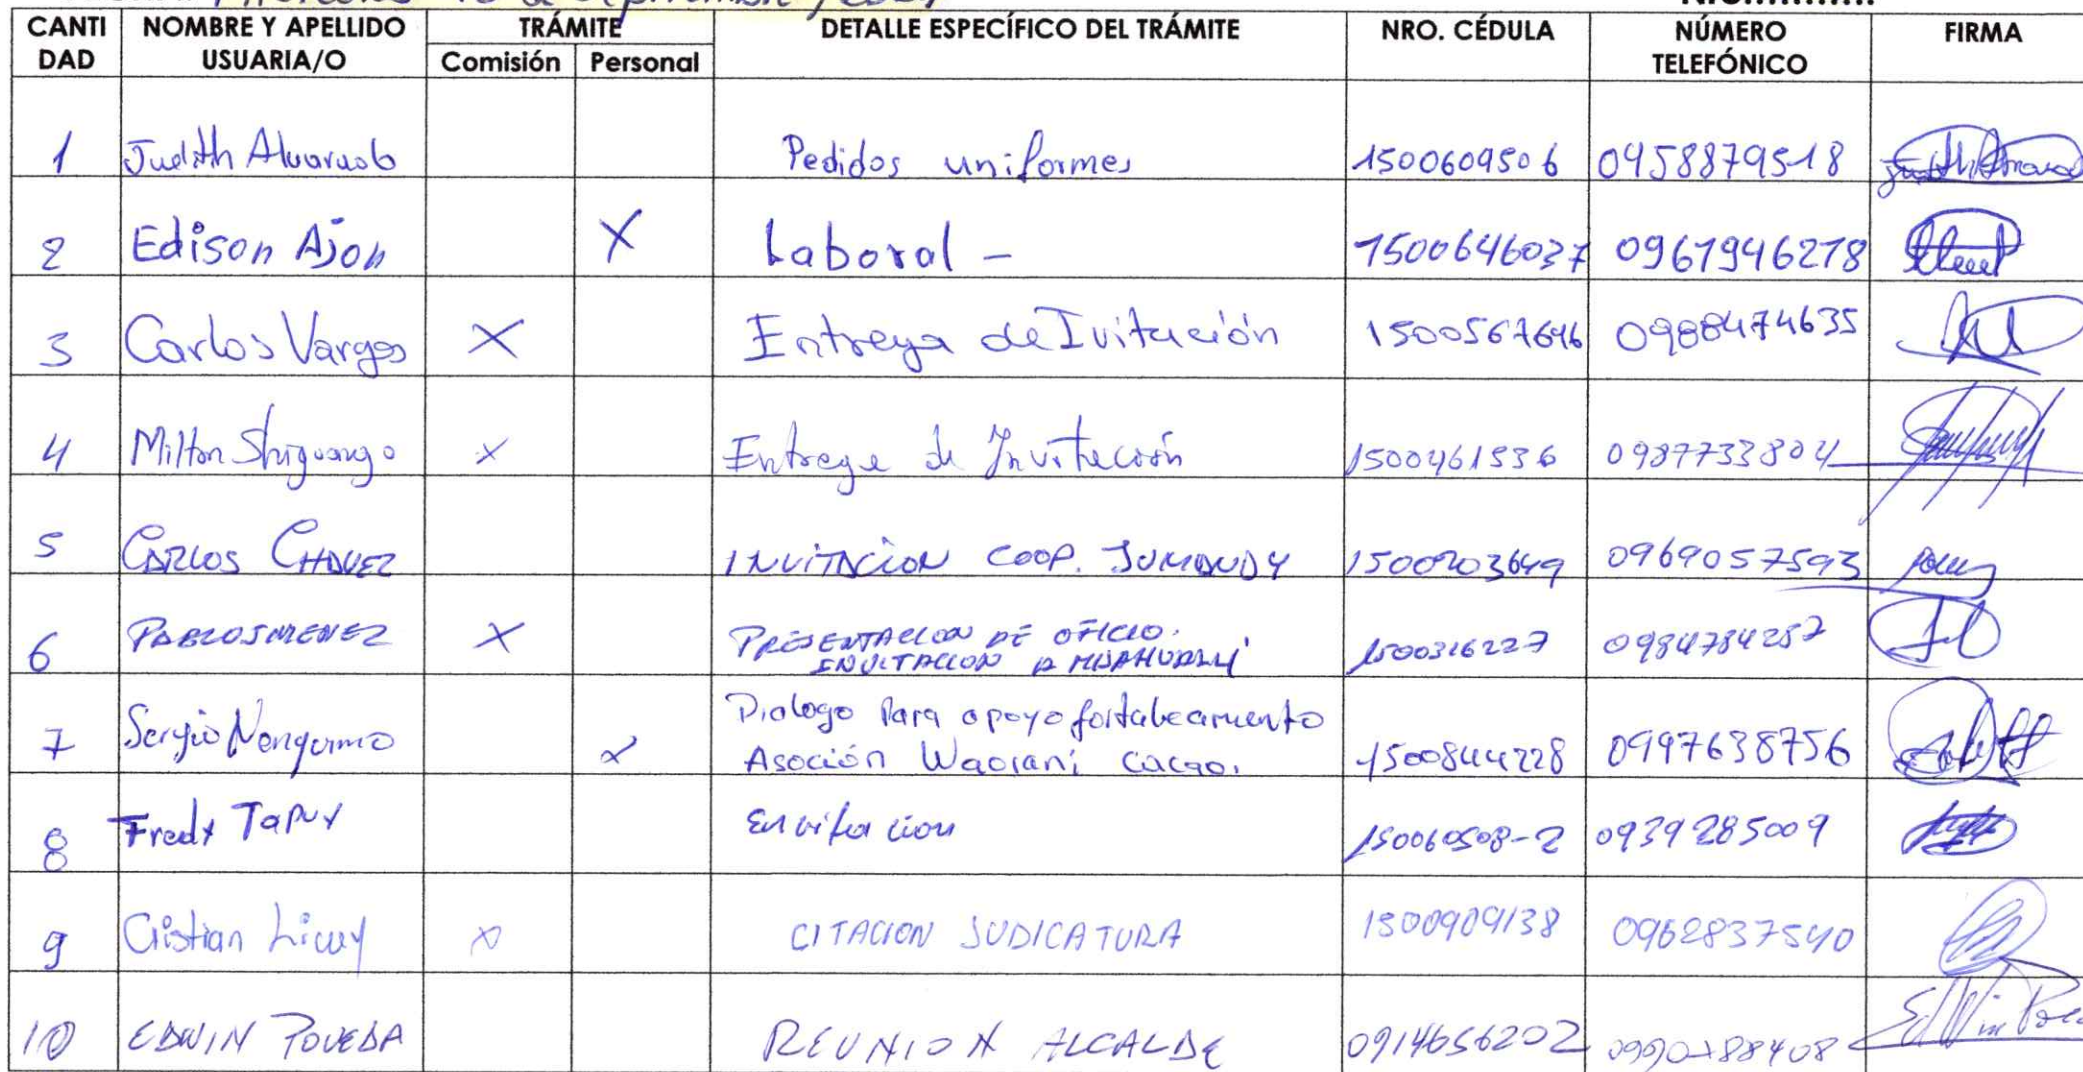 Miércoles 18 de septiembre / 2024
CANTI DAD NOMBRE Y APELLIDO USUARIA/O TRÁMITE Comisión Personal DETALLE ESPECÍFICO DEL TRÁMITE NRO. CÉDULA NÚMERO TELEFÓNICO FIRMA
1 Judith Alvarado Pedidos uniformes 1500609506 0958879518
2 Edison Ajon X Laboral - 1500646037 0961946218
3 Carlos Vargas X Entrega de Ivitación 1500567646 0988474635
4 Milton Shiguango X Entrega de Invitación 1500461536 0987733804
5 CARLOS CHAVEZ INVITACION COOP. JUMANDY 1500203649 0969057593
6 PABLO JIMENEZ X PRESENTACION DE OFICIO.
INVITACION A MISAHUALLI 1500316227 0984784257
7 Sergio Nenquimo X Dialogo Para apoyo fortalecamiento
Asoción Waorani cacao. 1500844228 0997638756
8 Fredy Tapuy Envitacion 150060508-2 0939285009
9 Cristian Licuy X CITACION JUDICATURA 1500909138 0962837540
10 EDWIN POVEDA REUNION ALCALDE 0914656202 0990288408